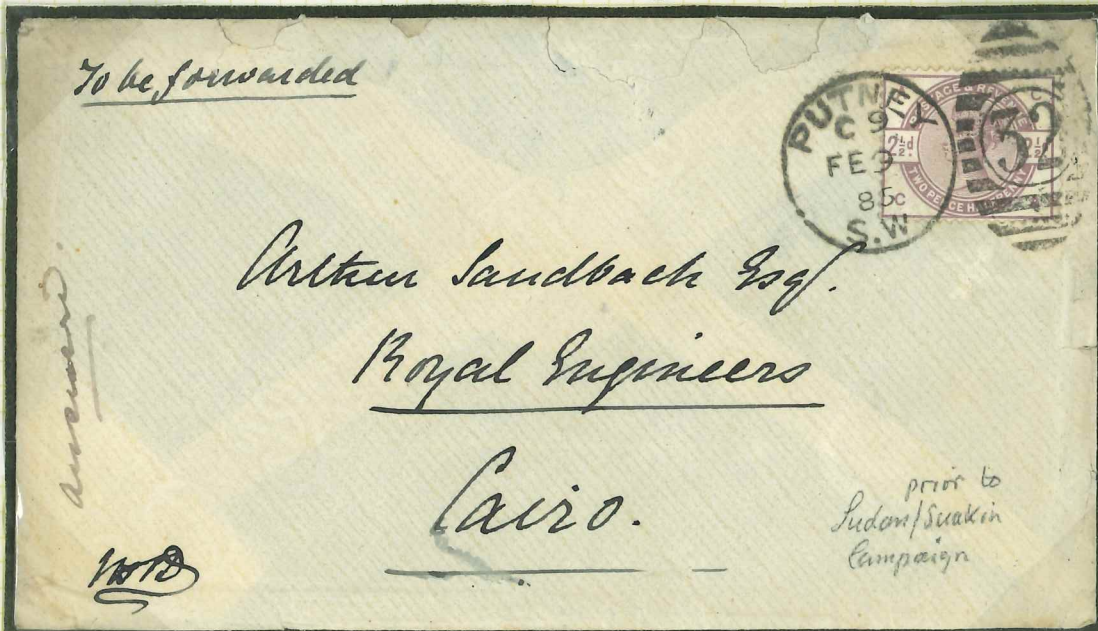 To be forwarded
PUTNEY
C 9
FE 9
85
S.W
POSTAGE & REVENUE
2½d.
TWO PENCE HALFPENNY
C
Arthur Sandbach Esq.
Royal Engineers
Cairo.
answered
prior to
Sudan/Suakin
Campaign